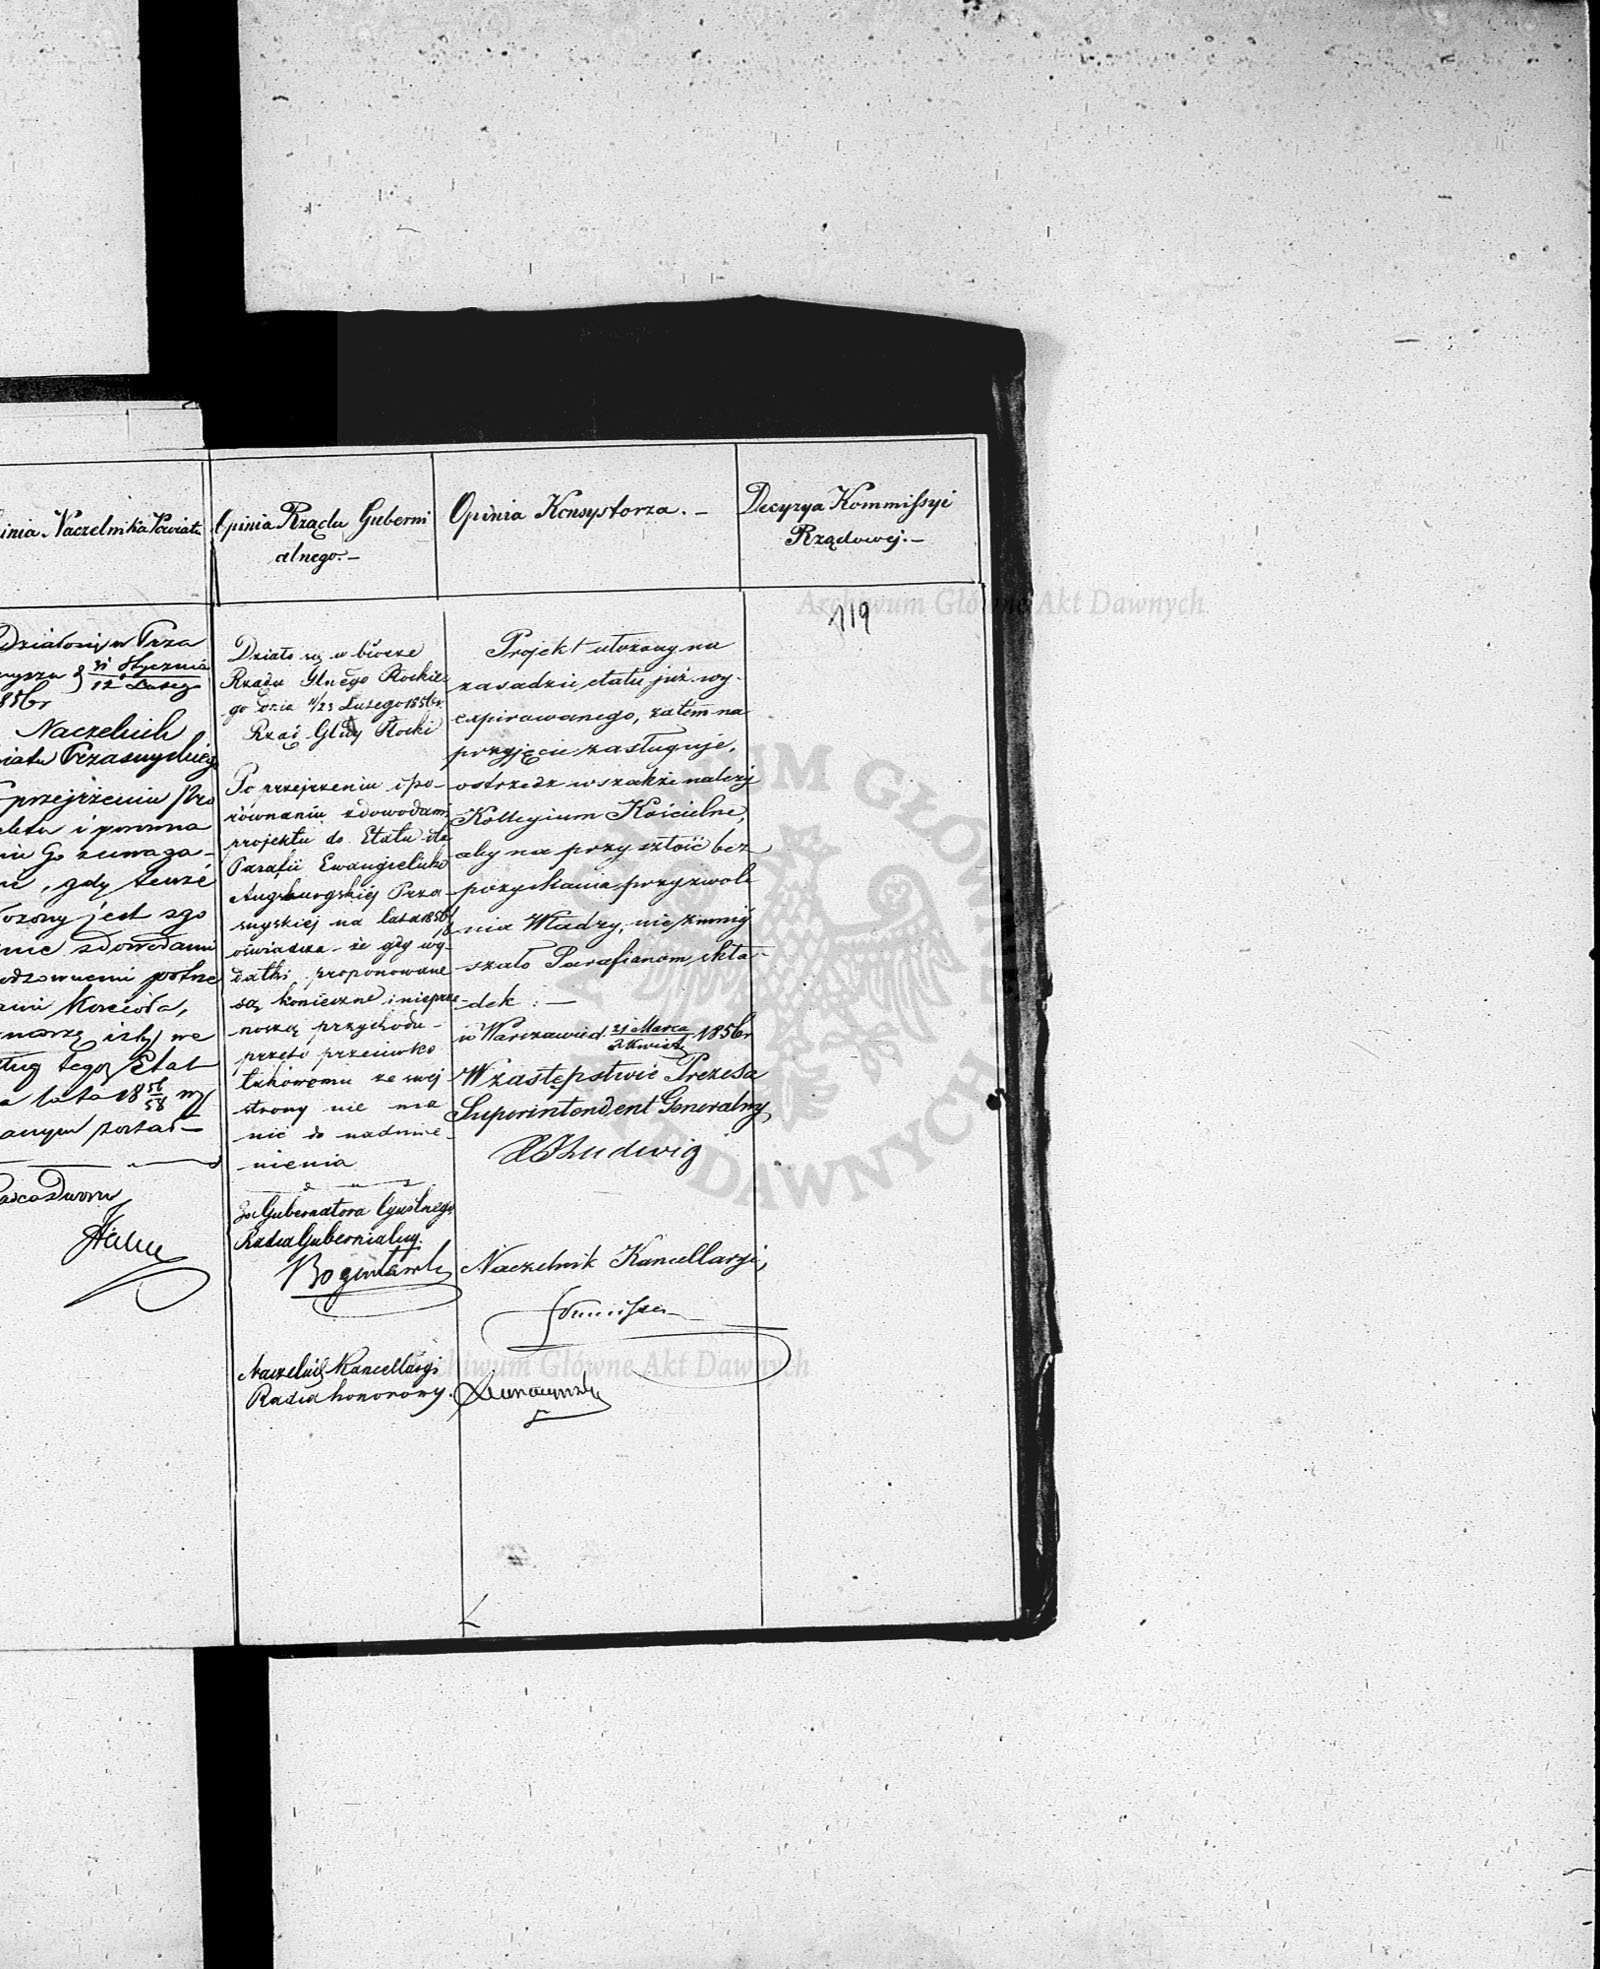 inia Naczelnika Powiatu
Opinia Rządu Guberni
alnego.-
Opinia Konsystorza. -
Decyzya Kommissyi
Rządowej.-
119
Działoni w Prza
31 Stycznia
12 Lutego
856r
Naczelnik
iatu Przasnyskieg
przejrzeniu Pro
i porówna
niu Go z uwaga-
ne, gdy tenże
ożony jest zgo
dnie z dowodami
potrze
ami Kościoła,
ług tego Etat
a lata 18 56/58
anym został -
Działo się w biórze
Rządu Glnego Płockie
go dnia 11/23 Lutego 1856 r.
Rząd Glny Płocki
Po przejrzeniu i po-
równaniu z dowodami
projektu do Etatu dla
Parafii Ewangielicko
Augsburgskiej Prza-
snyskiej na lata 1856/8
oświadcza - że gdy wy-
datki proponowane
są konieczne i nieprze-
noszą przychodu -
przeto przeciwko
takowemu ze swej
strony nie ma
nic do nadmie-
nienia
Za Gubernatora Cywilnego
Radca Gubernialny.
Naczelnik Kancellaryi
Radca honorowy.
Projekt ułożony na
zasadzie etatu już wy-
expirowanego, zatem na
przyjęcie zasługuje,
ostrzedz wszakże należy
Kollegium Kościelne,
aby na przyszłość bez
pozyskania przyzwole
nia Władzy, nie zmniej
szało Parafianom skła-
dek : -
w Warszawie d. 21 Marca / 2 Kwiet. 1856 r
W zastępstwie Prezesa
Superintendent Generalny
Ludwig
Naczelnik Kancellaryi,
Archiwum Główne Akt Dawnych
ARCHIWUM GŁÓWNE AKT DAWNYCH
Archiwum Główne Akt Dawnych